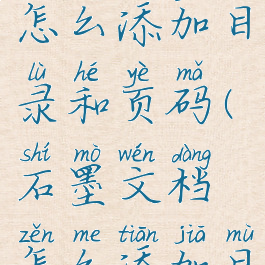 怎么添加目
lù hé yè mǎ
录和页码(
shí mò wén dàng
石墨文档
zěn me tiān jiā mù
怎么添加目